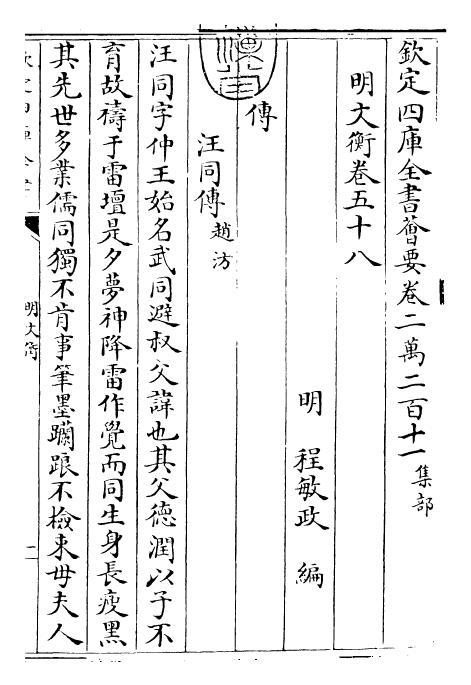 欽定四庫全書薈要卷二萬二百十一集部
明文衡卷五十八
明 程敏政 編
傳
汪同傳 趙汸
汪同字仲王始名武同避叔父諱也其父德潤以子不
育故禱于雷壇是夕夢神降雷作覺而同生身長瘦黑
其先世多業儒同獨不肯事筆墨躝踉不檢束毋夫人
明文衡